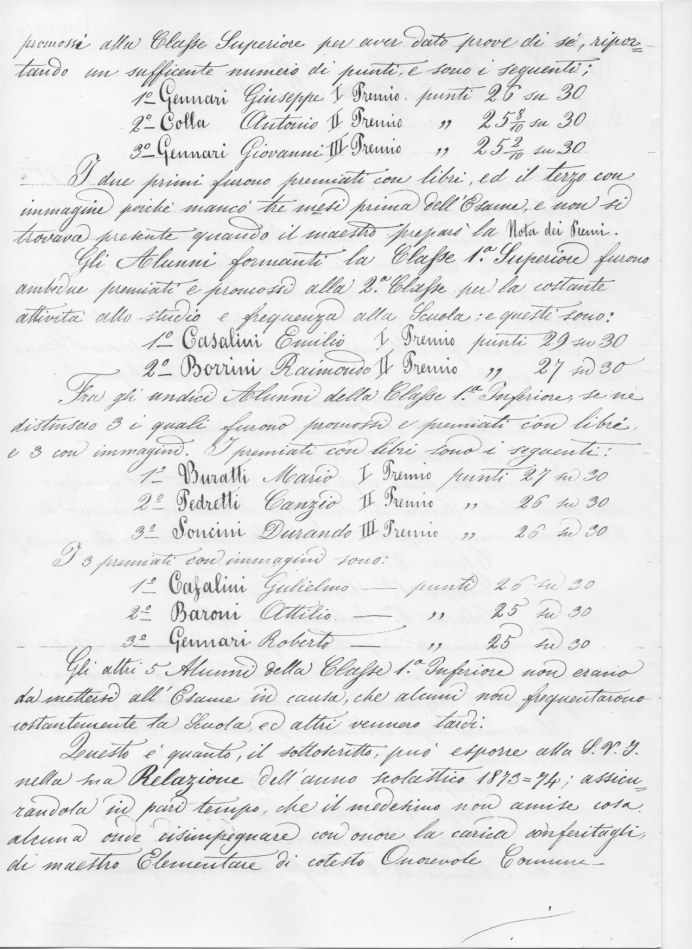 promossi alla Classe Superiore per aver dato prove di sé, ripor=
tando un sufficente numero di punti, e sono i seguenti;
1º Gennari Giuseppe I Premio. punti 26 su 30
2º Colla Antonio II Premio „ 25 8/10 su 30
3º Gennari Giovanni III Premio „ 25 2/10 su 30
I due primi furono premiati con libri, ed il terzo con
immagine poichè mancò tre mesi prima dell'Esame, e non si
trovava presente quando il maestro preparò la Nota dei Premi.
Gli Alunni formanti la Classe 1.ª Superiore furono
ambidue premiati e promossi alla 2.ª Classe per la costante
attività allo studio e frequenza alla Scuola: e questi sono:
1º Casalini Emilio I Premio punti 29 su 30
2º Borrini Raimondo II Premio „ 27 su 30
Fra gli undici Alunni della Classe 1.ª Inferiore, se ne
distinsero 3 i quali furono promossi e premiati con libri,
e 3 con immagini. I premiati con libri sono i seguenti:
1º Buratti Mario I Premio punti 27 su 30
2º Pedretti Canzio II Premio „ 26 su 30
3º Soncini Durando III Premio „ 26 su 30
I 3 premiati con immagini sono:
1º Casalini Gulielmo — punti 26 su 30
2º Baroni Attilio — „ 25 su 30
3º Gennari Roberto — „ 25 su 30
Gli altri 5 Alunni della Classe 1.ª Inferiore non erano
da mettersi all'Esame in causa, che alcuni non frequentarono
costantemente la Scuola, ed altri vennero tardi.
Questo è quanto, il sottoscritto, può esporre alla S.V.I.
nella sua Relazione dell'anno scolastico 1873=74; assicu=
randola in pari tempo, che il medesimo non amise cosa
alcuna onde disimpegnare con onore la carica conferitagli,
di maestro Elementare di cotesto Onorevole Comune —